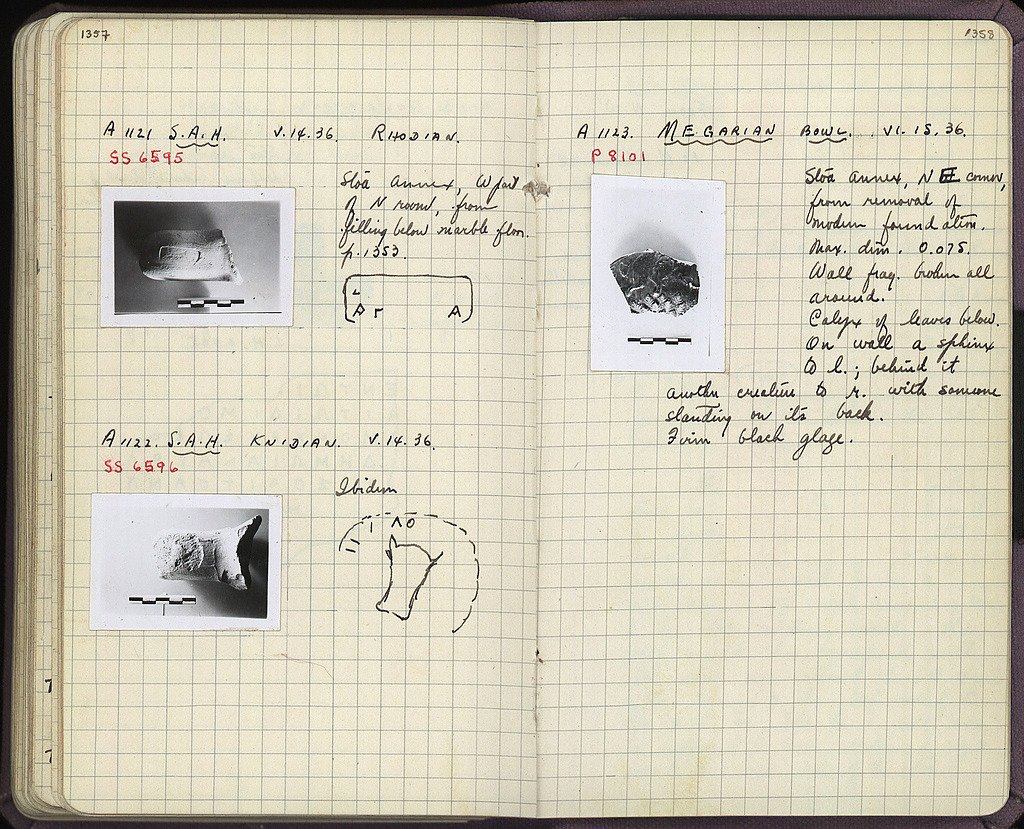 1357
A 1121 S.A.H. V.14.36. RHODIAN.
SS 6595
Stoa Annex, W part
of N room, from
filling below marble floor.
p. 1353.
A Γ A
A 1122. S.A.H. KNIDIAN. V.14.36.
SS 6596
Ibidem
Λ Ο
1358
A 1123. MEGARIAN BOWL. VI.15.36.
P 8101
Stoa Annex, N E corner,
from removal of
modern foundation.
Max. dim. 0.075.
Wall frag. broken all
around.
Calyx of leaves below.
On wall a sphinx
to l.; behind it
another creature to r. with someone
standing on its back.
Firm black glaze.